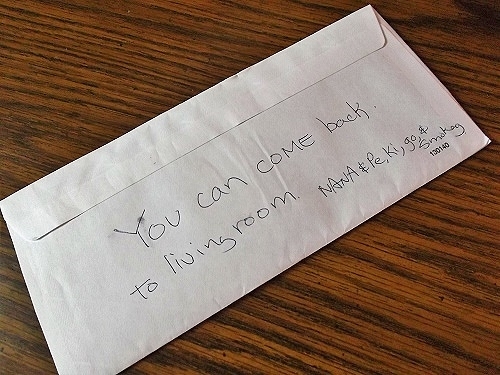 You can COME back.
to living room. NANA & Pe, Ki, go, &
Smokey
120140